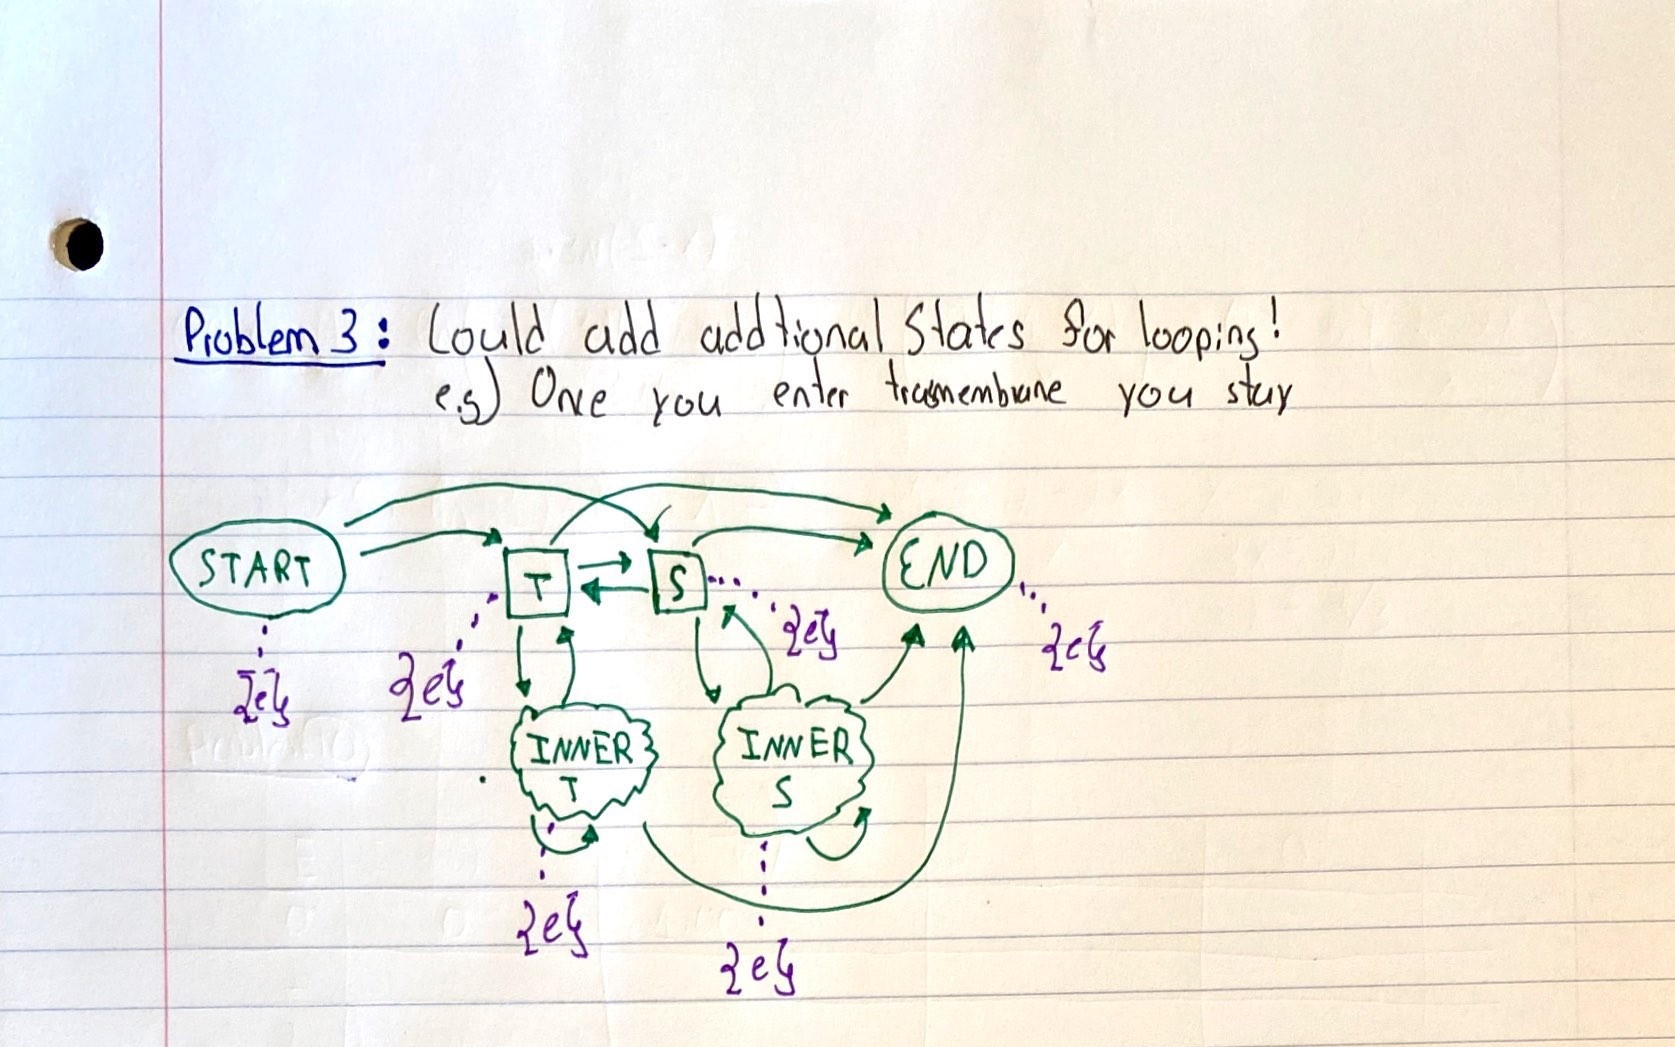 Problem 3: Could add addtional States for looping!
e.g) One you enter trasmembrane you stay
START
T
S
END
{e}
{e}
{e}
{e}
INNER
T
INNER
S
{e}
{e}